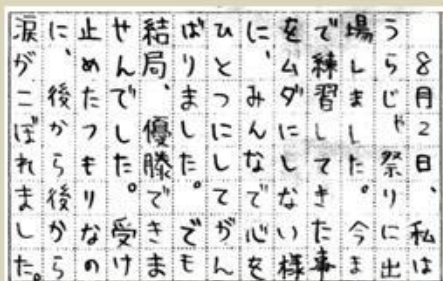 8月2日、私は
うらじゃ祭りに出
場しました。今ま
で練習してきた事
をムダにしない様
に、みんなで心を
ひとつにしてがん
ばりました。でも
結局、優勝できま
せんでした。受け
止めたつもりなの
に、後から後から
涙がこぼれました。